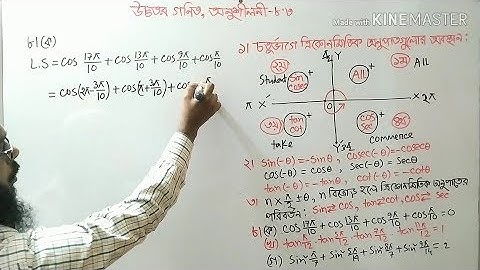 উচ্চতর গণিত, অনুশীলনী-৮.৩
Made with KINEMASTER
৮। (ক)
L.S = cos 17π/10 + cos 13π/10 + cos 9π/10 + cos π/10
= cos(2π - 3π/10) + cos(π + 3π/10) + cos
১। চতুর্ভাগে ত্রিকোণমিতিক অনুপাতগুলোর অবস্থান:
Y
২য়
১ম
All
Student
sin cosec
+
All
+
π
X
0
X
2π
৩য়
tan cot
+
cos sec
+
৪র্থ
take
Y
commence
২। sin(-θ) = -sinθ, cosec(-θ) = -cosecθ
cos(-θ) = cosθ, sec(-θ) = secθ
tan(-θ) = -tanθ, cot(-θ) = -cotθ
৩। n × π/2 ± θ, n বিজোড় হলে ত্রিকোণমিতিক অনুপাতের
পরিবর্তন: sin⇄cos, tan⇄cot, cosec⇄sec
৮। (ক) cos 17π/10 + cos 13π/10 + cos 9π/10 + cos π/10 = 0
(খ) tan π/12 · tan 5π/12 · tan 7π/12 · tan 11π/12 = 1
(গ) sin² π/7 + sin² 5π/14 + sin² 8π/7 + sin² 9π/14 = 2